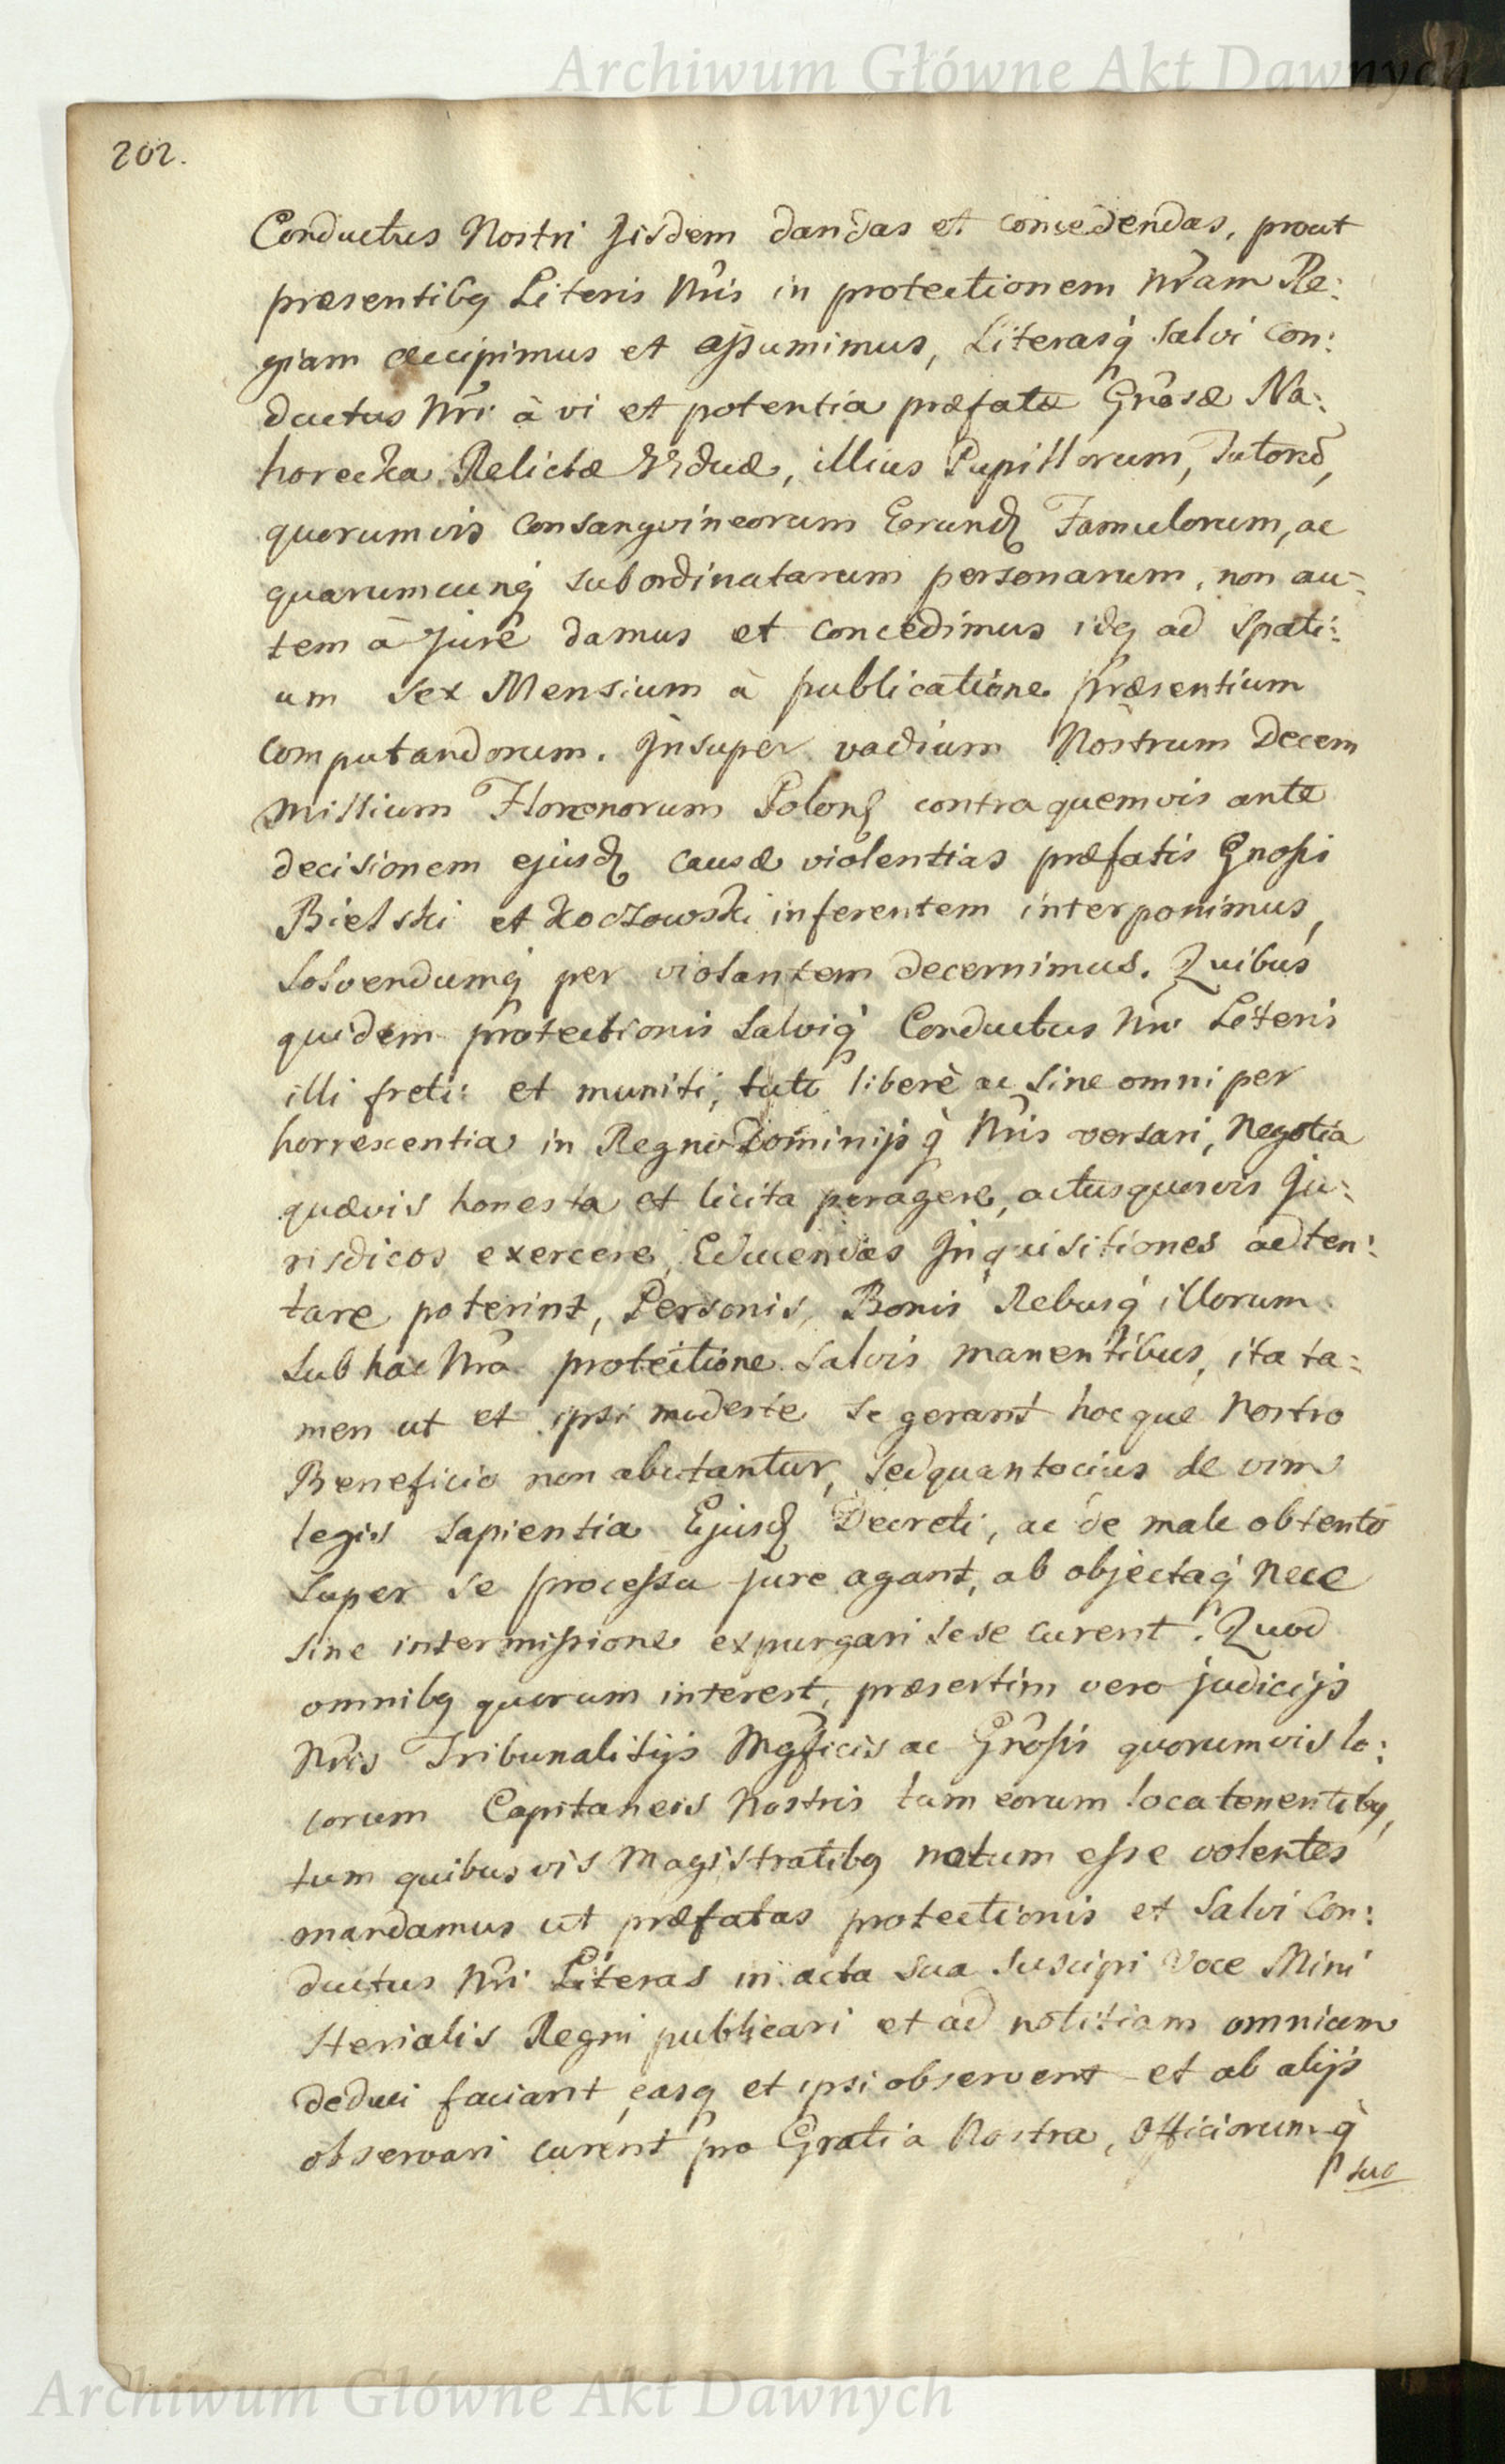 Archiwum Główne Akt Dawnych
202.
Conductus Nostri Jisdem dandas et concedendas, prout
præsentibq Literis Nris in protectionem Nram Re:
giam accipimus et assumimus, Literasq salvi Con:
ductus Nri à vi et potentia præfatæ Grosæ Na:
horecka Relictæ Viduæ, illius Pupillorum, Tutorũ,
quorumvis Consangvineorum Eorund Famulorum, ac
quarumcunq subordinatarum personarum, non au=
tem à Jure damus et concedimus idq ad spati:
um sex Mensium à publicatione præsentium
computandorum. Jnsuper vadium Nostrum Decem
Millium Florenorum Polon contra quemvis ante
decisionem ejusd causæ violentias præfatis Gnosis
Bielski et Koczowski inferentem interponimus,
solvendumq per violantem decernimus. Quibus
quidem protectionis Salviq Conductus Nri Literis
illi freti: et muniti, tutò liberè ac sine omni per
horrescentia in Regno Dominijsq Nris versari, Negotia
quævis honesta et licita peragere, actusquosvis Ju:
risdicos exercere, Educendas Jnquisitiones adten:
tare poterint, Personis, Bonis Rebusq illorum
sub hac Nra protectione salvis manentibus, ita ta=
men ut et ipsi modeste se gerant hocque Nostro
Beneficio non abutantur, sed quantocius de vim
legis sapientia Ejusd Decreti, ac de male obtento
super se processu jure agant, ab objectaq Nece
sine intermissione expurgari sese curent. Quod
omnibq quorum interest, præsertim vero judicijs
Nris Tribunalitijs Mgficis ac Grosis quorumvis lo:
corum Capitaneis Nostris tam eorum locatenentibq,
tum quibusvis Magistratibq notum esse volentes
mandamus ut præfatas protectionis et Salvi Con:
ductus Nri Literas in acta sua suscipi Voce Mini
sterialis Regni publicari et ad notitiam omnium
deduci faciant, easq et ipsi observent et ab alijs
observari curent pro Gratia Nostra, Officiorumq
suo
Archiwum Główne Akt Dawnych